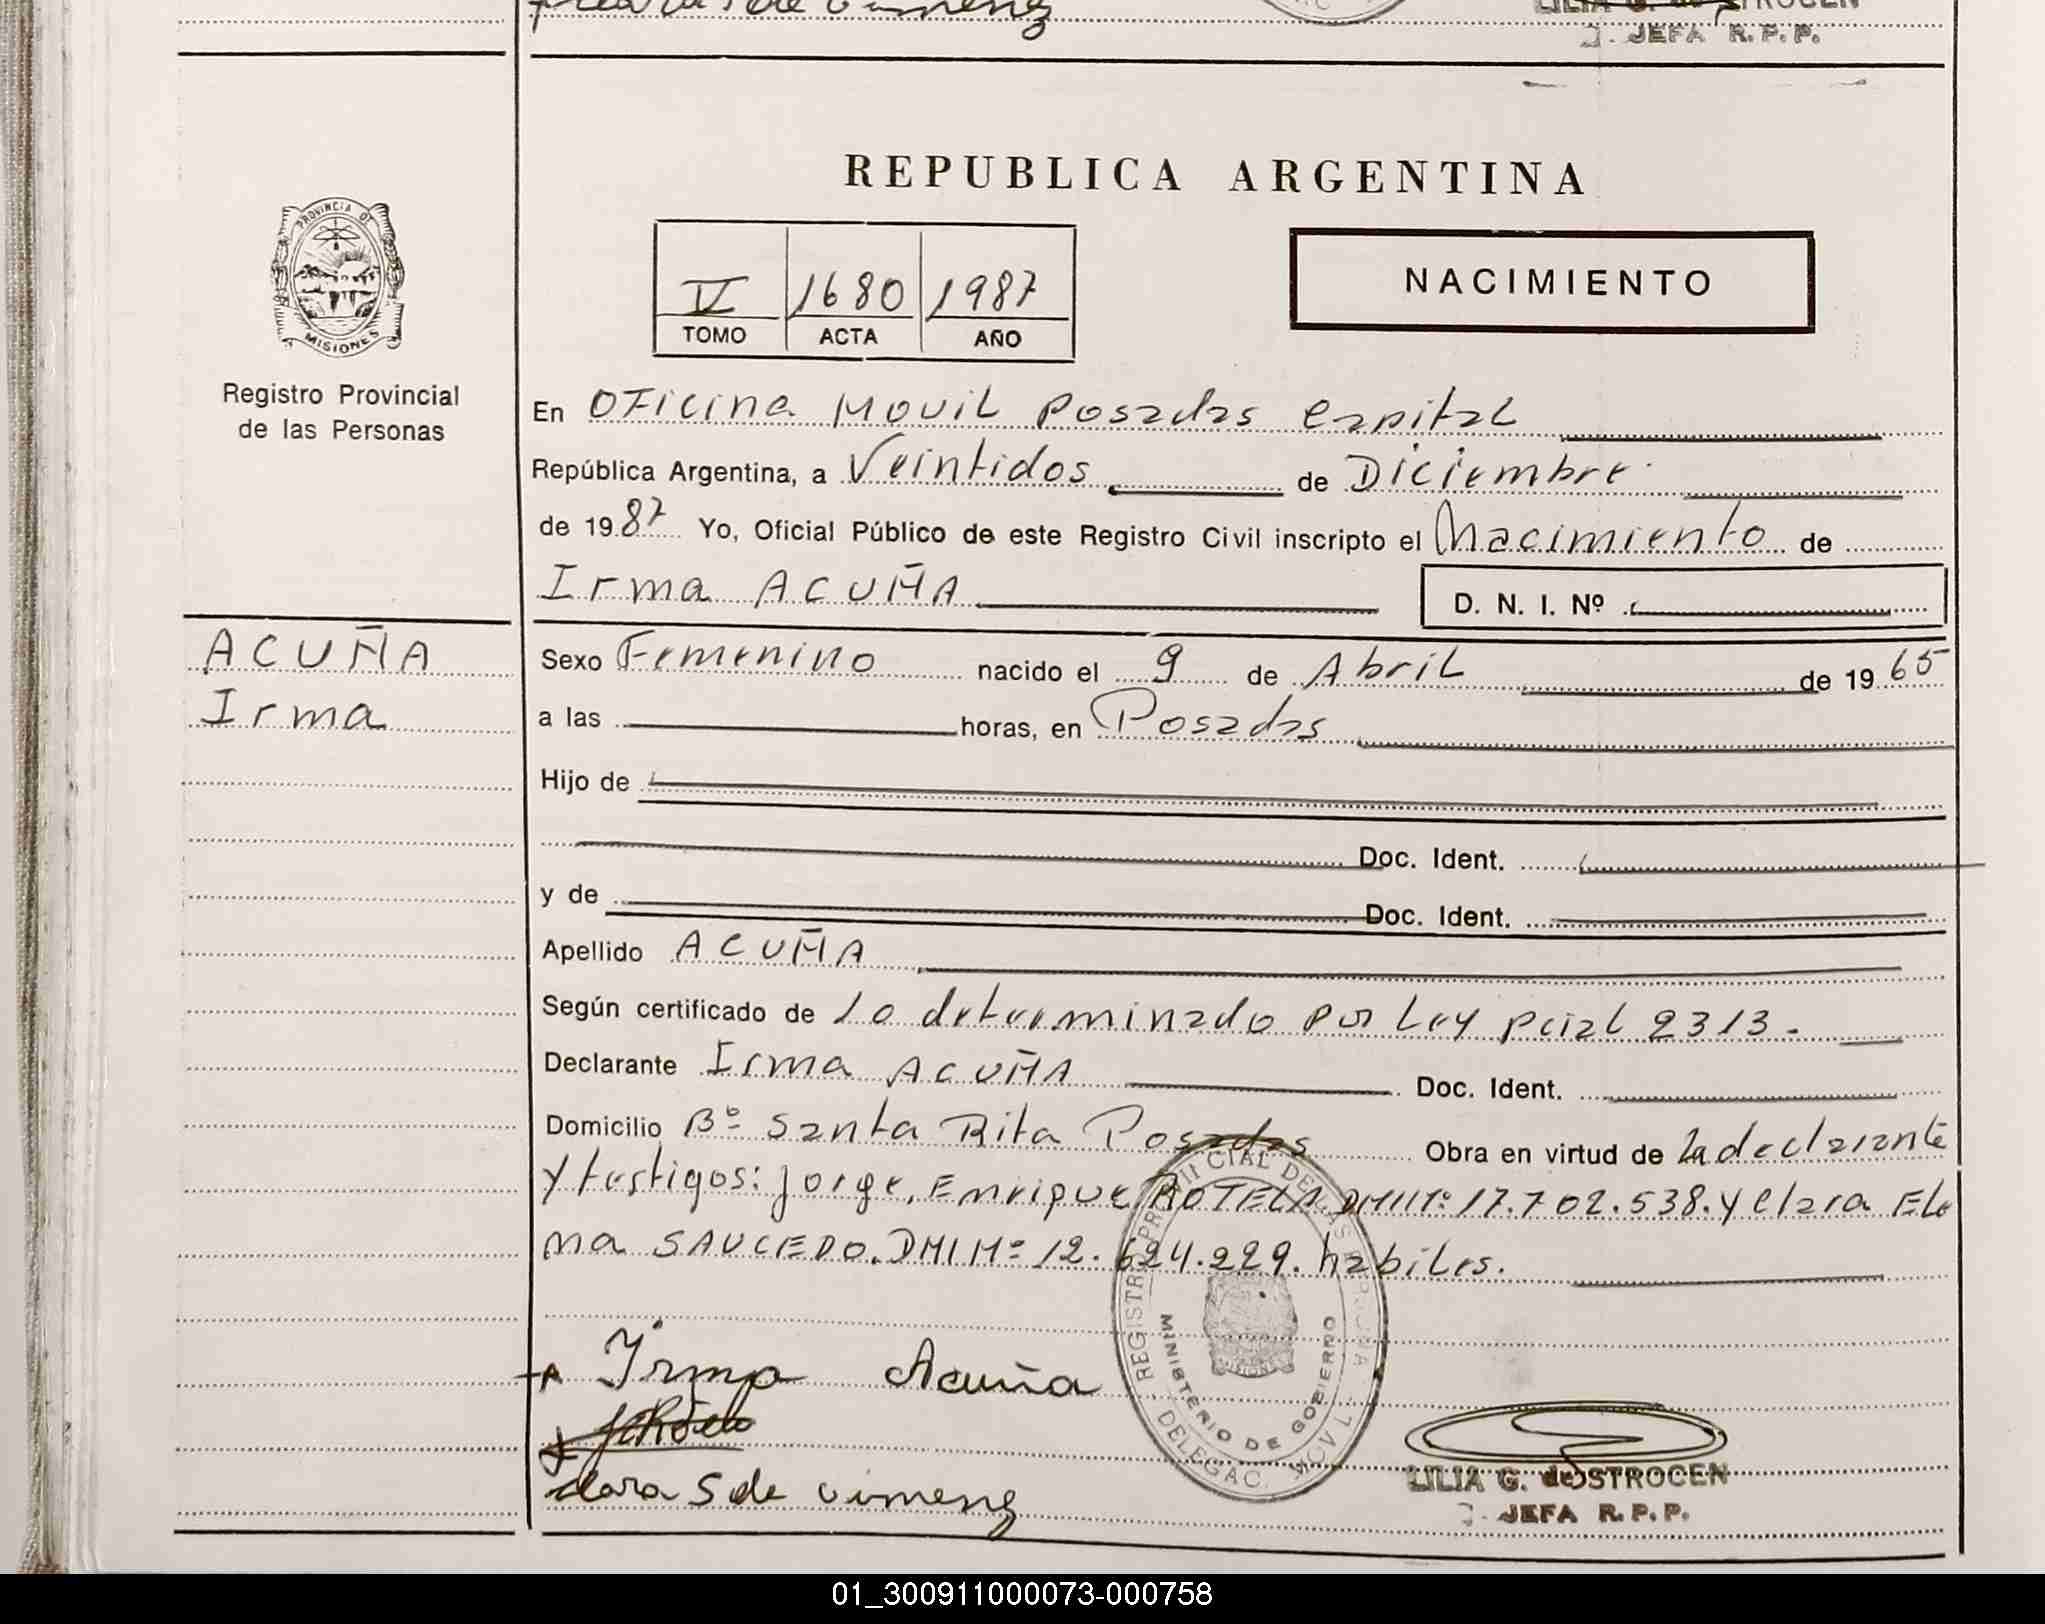 LILIA G. de STROCEN
JEFA R. P. P.
REPUBLICA ARGENTINA
PROVINCIA DE
MISIONES
Registro Provincial
de las Personas
V 1680 1987
TOMO ACTA AÑO
NACIMIENTO
En Oficina Movil Posadas Capital
República Argentina, a Veintidos de Diciembre
de 1987 Yo, Oficial Público de este Registro Civil inscripto el Nacimiento de
Irma ACUÑA D. N. I. Nº
ACUÑA
Irma
Sexo Femenino nacido el 9 de Abril de 1965
a las horas, en Posadas
Hijo de
Doc. Ident.
y de Doc. Ident.
Apellido ACUÑA
Según certificado de lo determinado por Ley pcial 2313.
Declarante Irma ACUÑA Doc. Ident.
Domicilio Bº Santa Rita Posadas Obra en virtud de la declarante
y testigos: Jorge, Enrique BOTELA DNI Nº 17.702.538. y Clara Ele
na SAUCEDO. DNI Nº 12.624.229. habiles.
Irma Acuña
Clara S de Gimenez
MINISTERIO DE GOBIERNO
LILIA G. de STROCEN
JEFA R. P. P.
01_300911000073-000758